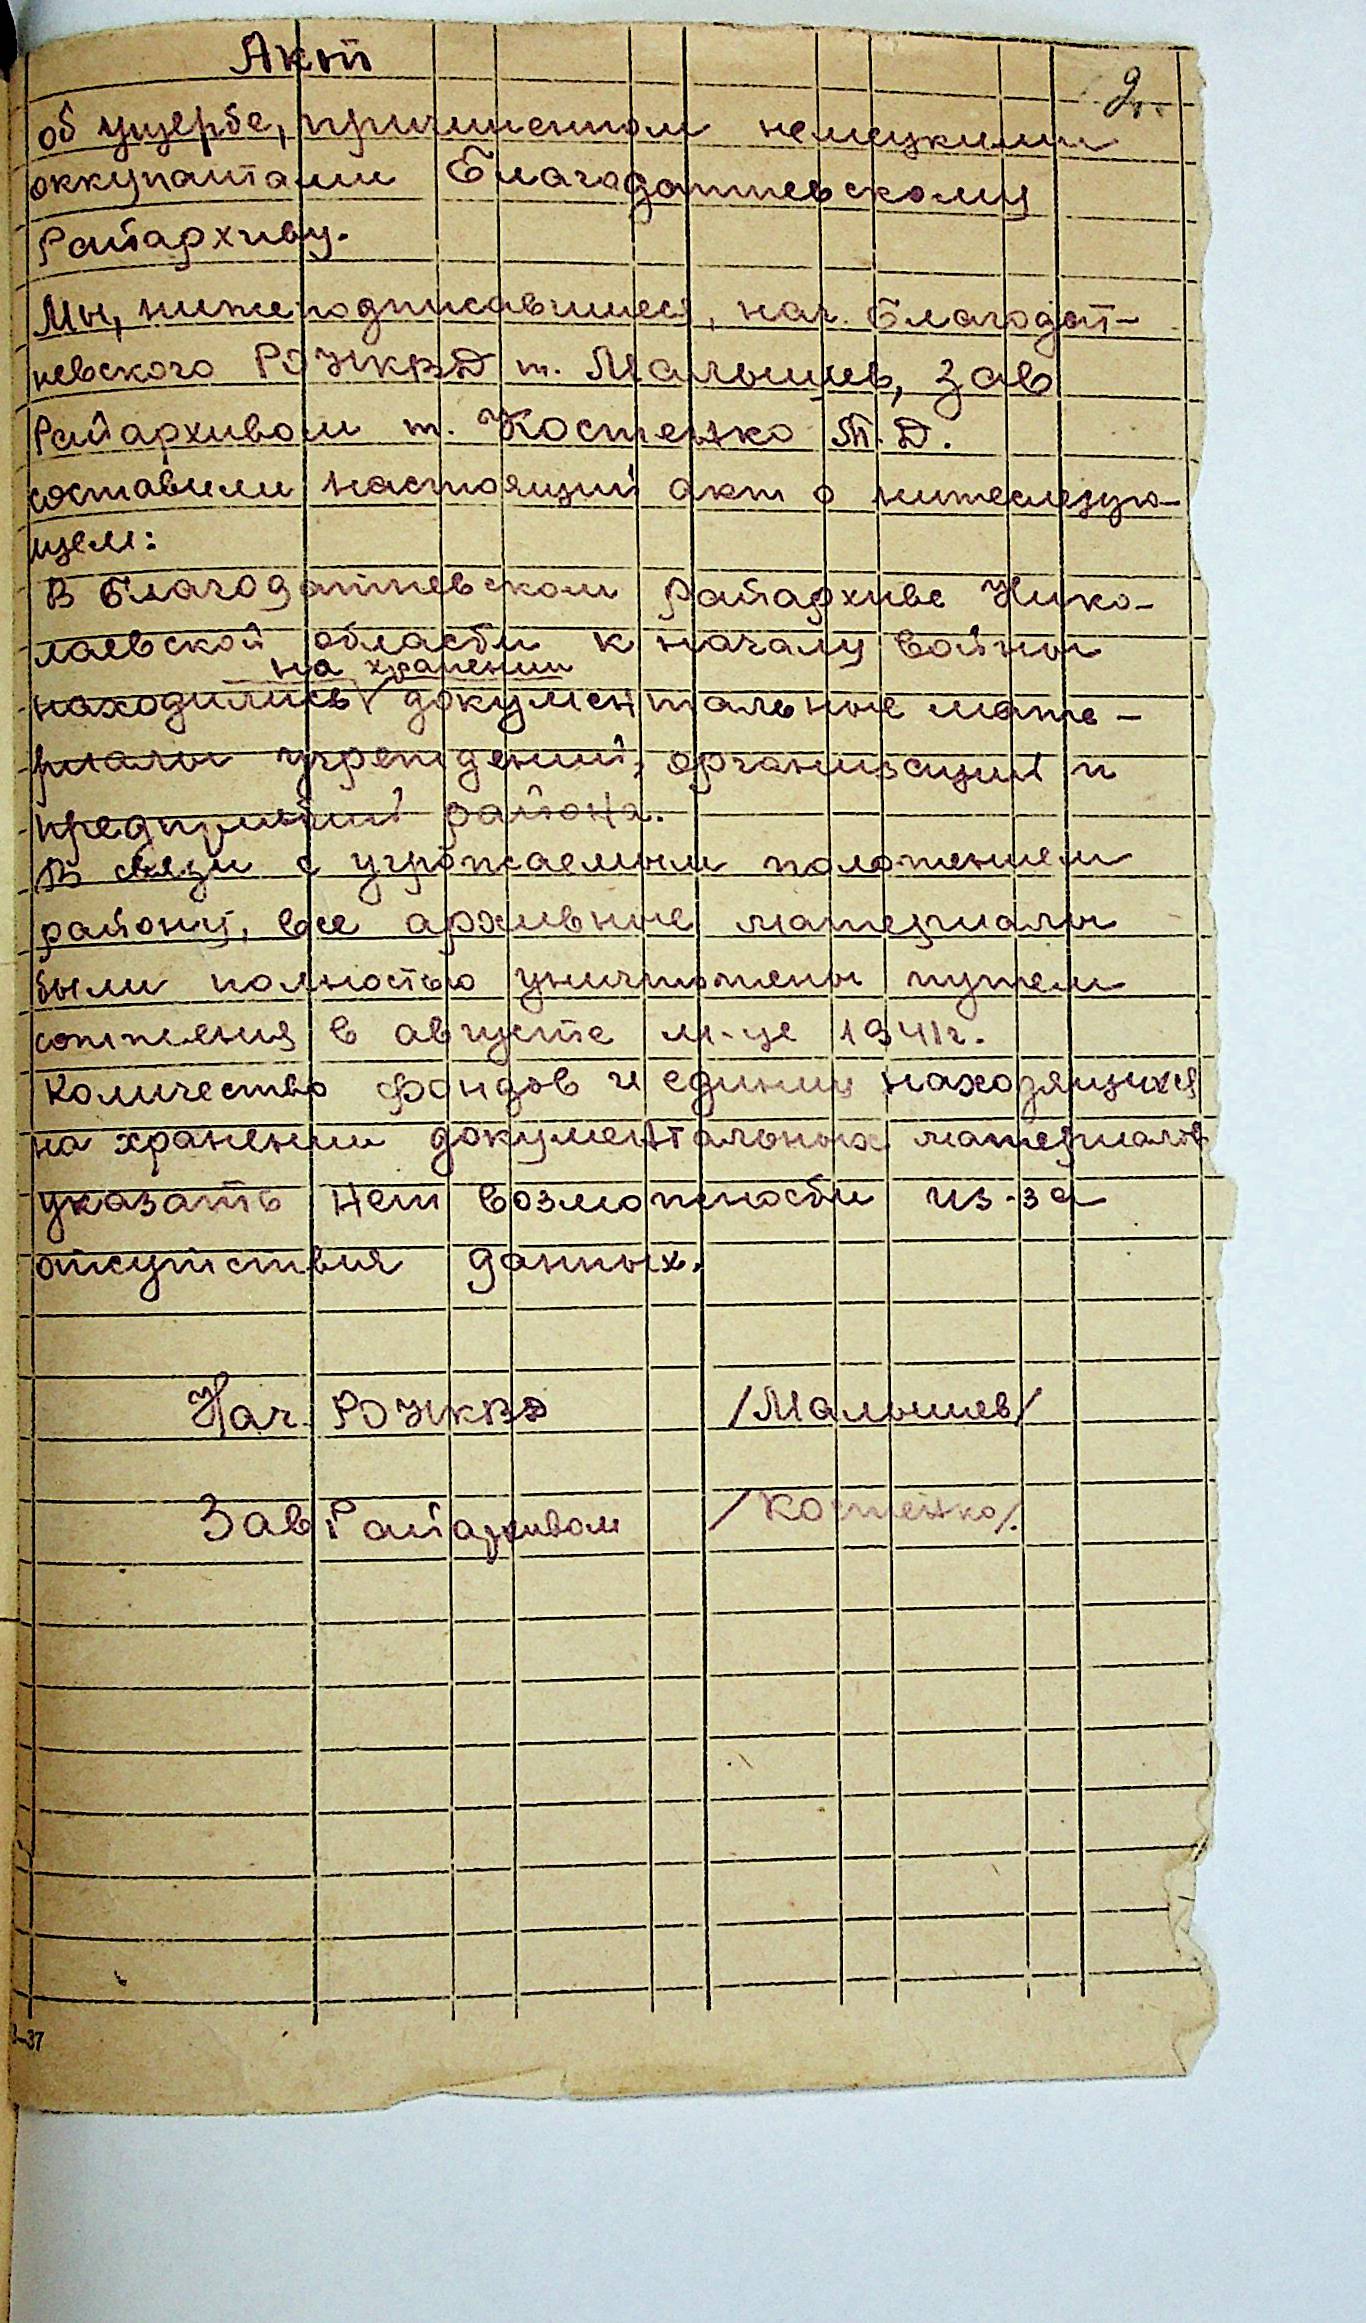 Акт
2
об ущербе, причиненном немецкими
оккупантами Благодатневскому
Райархиву.
Мы, нижеподписавшиеся, нач. Благодат-
невского РОНКВД т. Малышев, Зав
Райархивом т. Костенко Т.Д.
составили настоящий акт о нижеследую-
щем:
В Благодатневском Райархиве Нико-
лаевской области к началу войны
на хранении
находились документальные мате-
риалы учреждений, организаций и
предприятий района.
В связи с угрожаемым положением
району, все архивные материалы
были полностью уничтожены путем
сожжения в августе м-це 1941г.
Количество фондов и единиц находящихся
на хранении документальных материалов
указать нет возможности из-за
отсутствия данных.
Нач. РОНКВД /Малышев/
Зав Райархивом /Костенко/.
-37